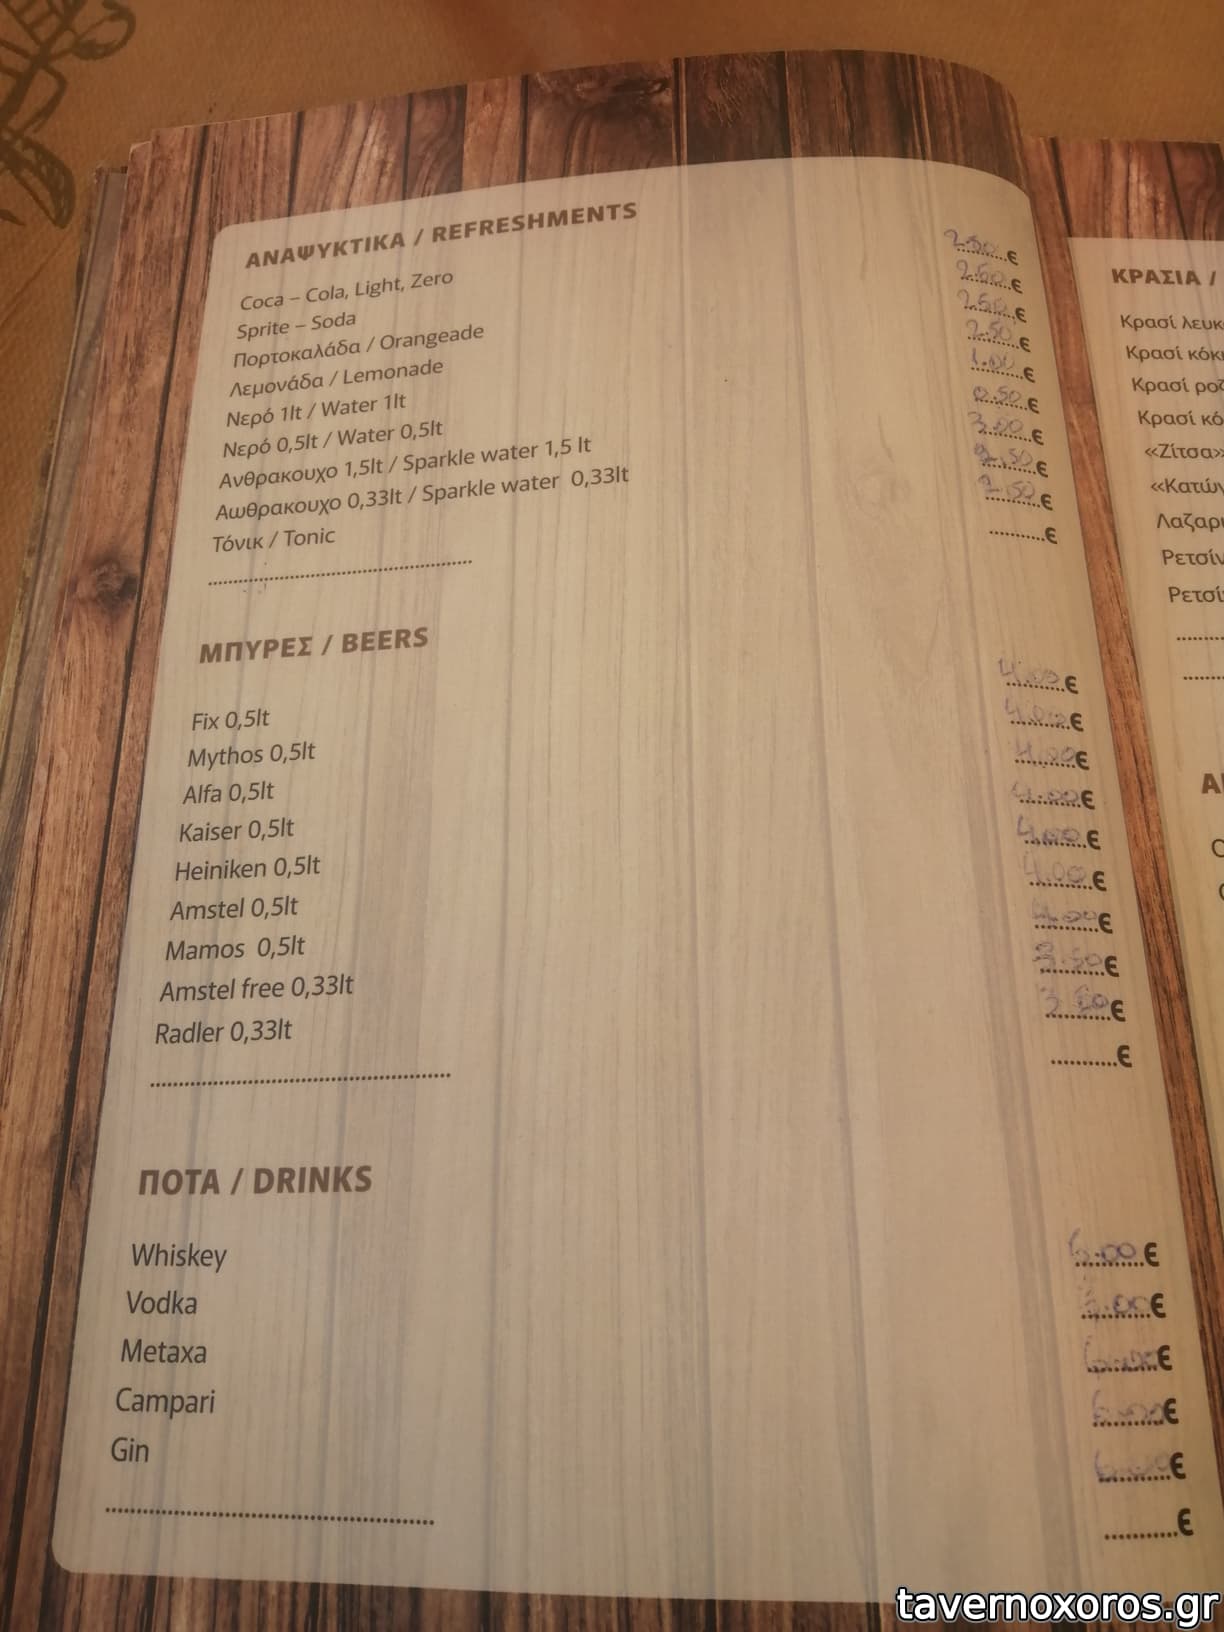 ΑΝΑΨΥΚΤΙΚΑ / REFRESHMENTS
Coca – Cola, Light, Zero 2.50 €
Sprite – Soda 2.50 €
Πορτοκαλάδα / Orangeade 2.50 €
Λεμονάδα / Lemonade 2.50 €
Νερό 1lt / Water 1lt 1.00 €
Νερό 0,5lt / Water 0,5lt 0.50 €
Ανθρακουχο 1,5lt / Sparkle water 1,5 lt 3.00 €
Αωθρακουχο 0,33lt / Sparkle water 0,33lt 2.50 €
Τόνικ / Tonic 2.50 €
.......... €
ΜΠΥΡΕΣ / BEERS
Fix 0,5lt 4.00 €
Mythos 0,5lt 4.00 €
Alfa 0,5lt 4.00 €
Kaiser 0,5lt 4.00 €
Heiniken 0,5lt 4.00 €
Amstel 0,5lt 4.00 €
Mamos 0,5lt 4.00 €
Amstel free 0,33lt 3.50 €
Radler 0,33lt 3.50 €
.......... €
ΠΟΤΑ / DRINKS
Whiskey 6.00 €
Vodka 6.00 €
Metaxa 6.00 €
Campari 6.00 €
Gin 6.00 €
.......... €
ΚΡΑΣΙΑ /
Κρασί
Κρασί
Κρασί
Κρασί
«Ζίτσα»
tavernoxoros.gr